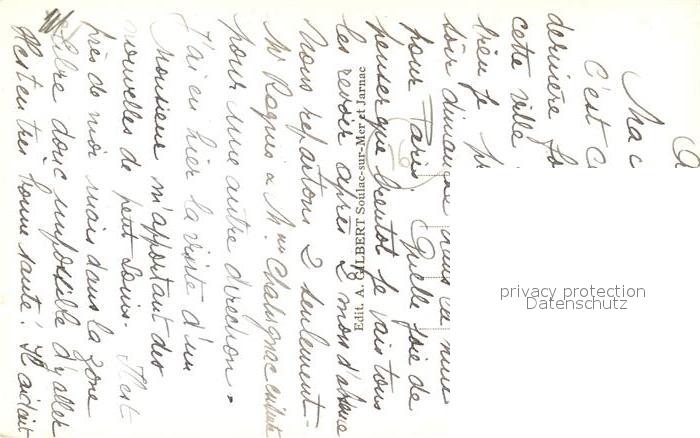 Ma c
C'est c
dernière fo
cette ville
lieu je p
soir dimanche nous
pour Paris. Quelle joie de
penser que bientôt je vais tous
les revoir après 2 mois d'absence
Nous repartons 2 seulement -
Mr Ragnis a Mme Chalignac
pour une autre direction.
J'ai eu hier la visite d'un
Monsieur m'apportant des
nouvelles de petit Louis. Il est
près de moi mais dans la zone
libre donc impossible d'y aller
Il est en très bonne santé. Il
Edit. A. GILBERT Soulac-sur-Mer et Jarnac
privacy protection
Datenschutz